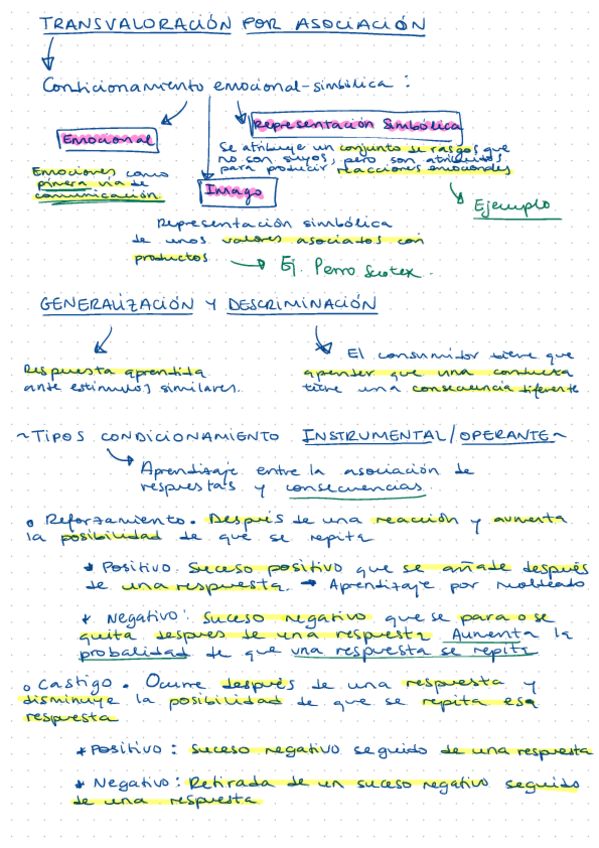 TRANSVALORACIÓN POR ASOCIACIÓN
Condicionamiento emocional-simbólica :
Emocional
Emociones como
pimera vía de
comunicación
Representación Simbólica
Se atribuye un conjunto de rasgos que
no son suyos, pero son atribuidos
para producir reacciones emocionales
Ejemplo
Imago
Representación simbólica
de unos valores asociados con
productos
Ej. Perro Scotex.
GENERALIZACIÓN Y DESCRIMINACIÓN
Respuesta aprendida
ante estímulos similares.
El consumidor tiene que
apender que una conducta
tiene una consecuencia diferente
~TIPOS CONDICIONAMIENTO INSTRUMENTAL/OPERANTE~
Aprendizaje entre la asociación de
respuestas y consecuencias.
o Reforzamiento. Después de una reacción y aumenta
la posibilidad de que se repita
* Positivo. Suceso positivo que se añade después
de una respuesta. → Aprendizaje por moldeado
* Negativo: Suceso negativo que se para o se
quita despues de una respuesta. Aumenta la
probalidad de que una respuesta se repita
o Castigo. Ocurre después de una respuesta y
disminuye la posibilidad de que se repita esa
respuesta
* Positivo : Suceso negativo seguido de una respuesta
* Negativo : Retirada de un suceso negativo seguido
de una respuesta